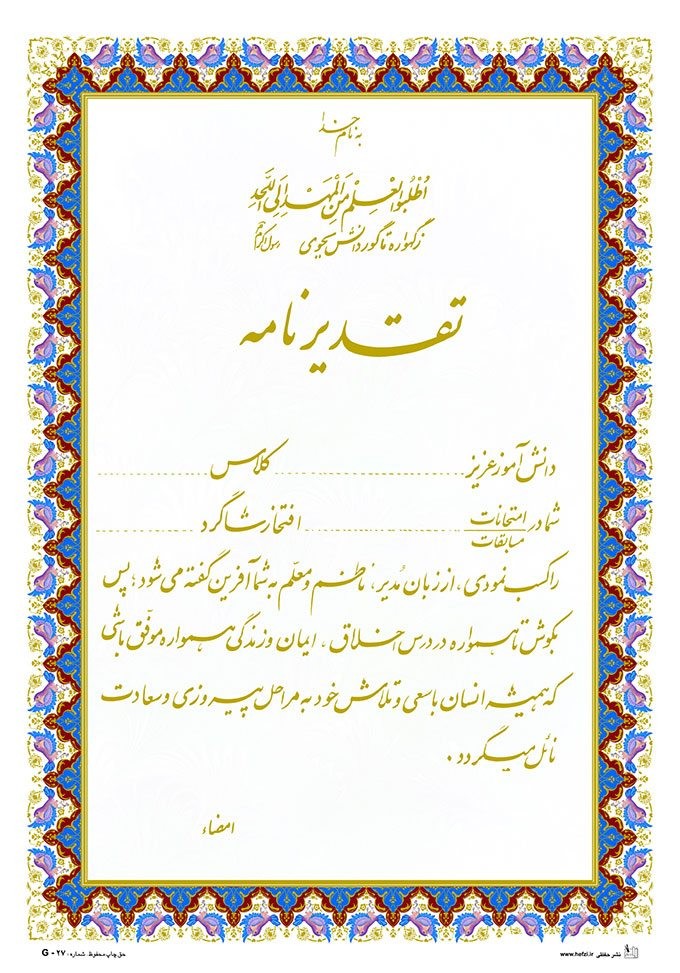 به نام خدا
اُطْلُبُوا الْعِلْمَ مِنَ الْمَهْدِ اِلَی اللَّحَدِ
زگهواره تا گور دانش بجوی رسول اکرم
تقدیرنامه
دانش آموز عزیز ........ کلاس ........
شما در امتحانات ........ افتخار شاگرد ........
مسابقات
را کسب نمودی، از زبان مُدیر، ناظم و معلّم به شما آفرین گفته می شود؛ پس
بکوش تا همواره در درس اخلاق، ایمان و زندگی همواره موفّق باشی
که همیشه انسان با سعی و تلاش خود به مراحل پیروزی و سعادت
نائل میگردد.
امضاء
نشر حفظی www.hefzi.ir
حق چاپ محفوظ. شماره: G - ۲۷